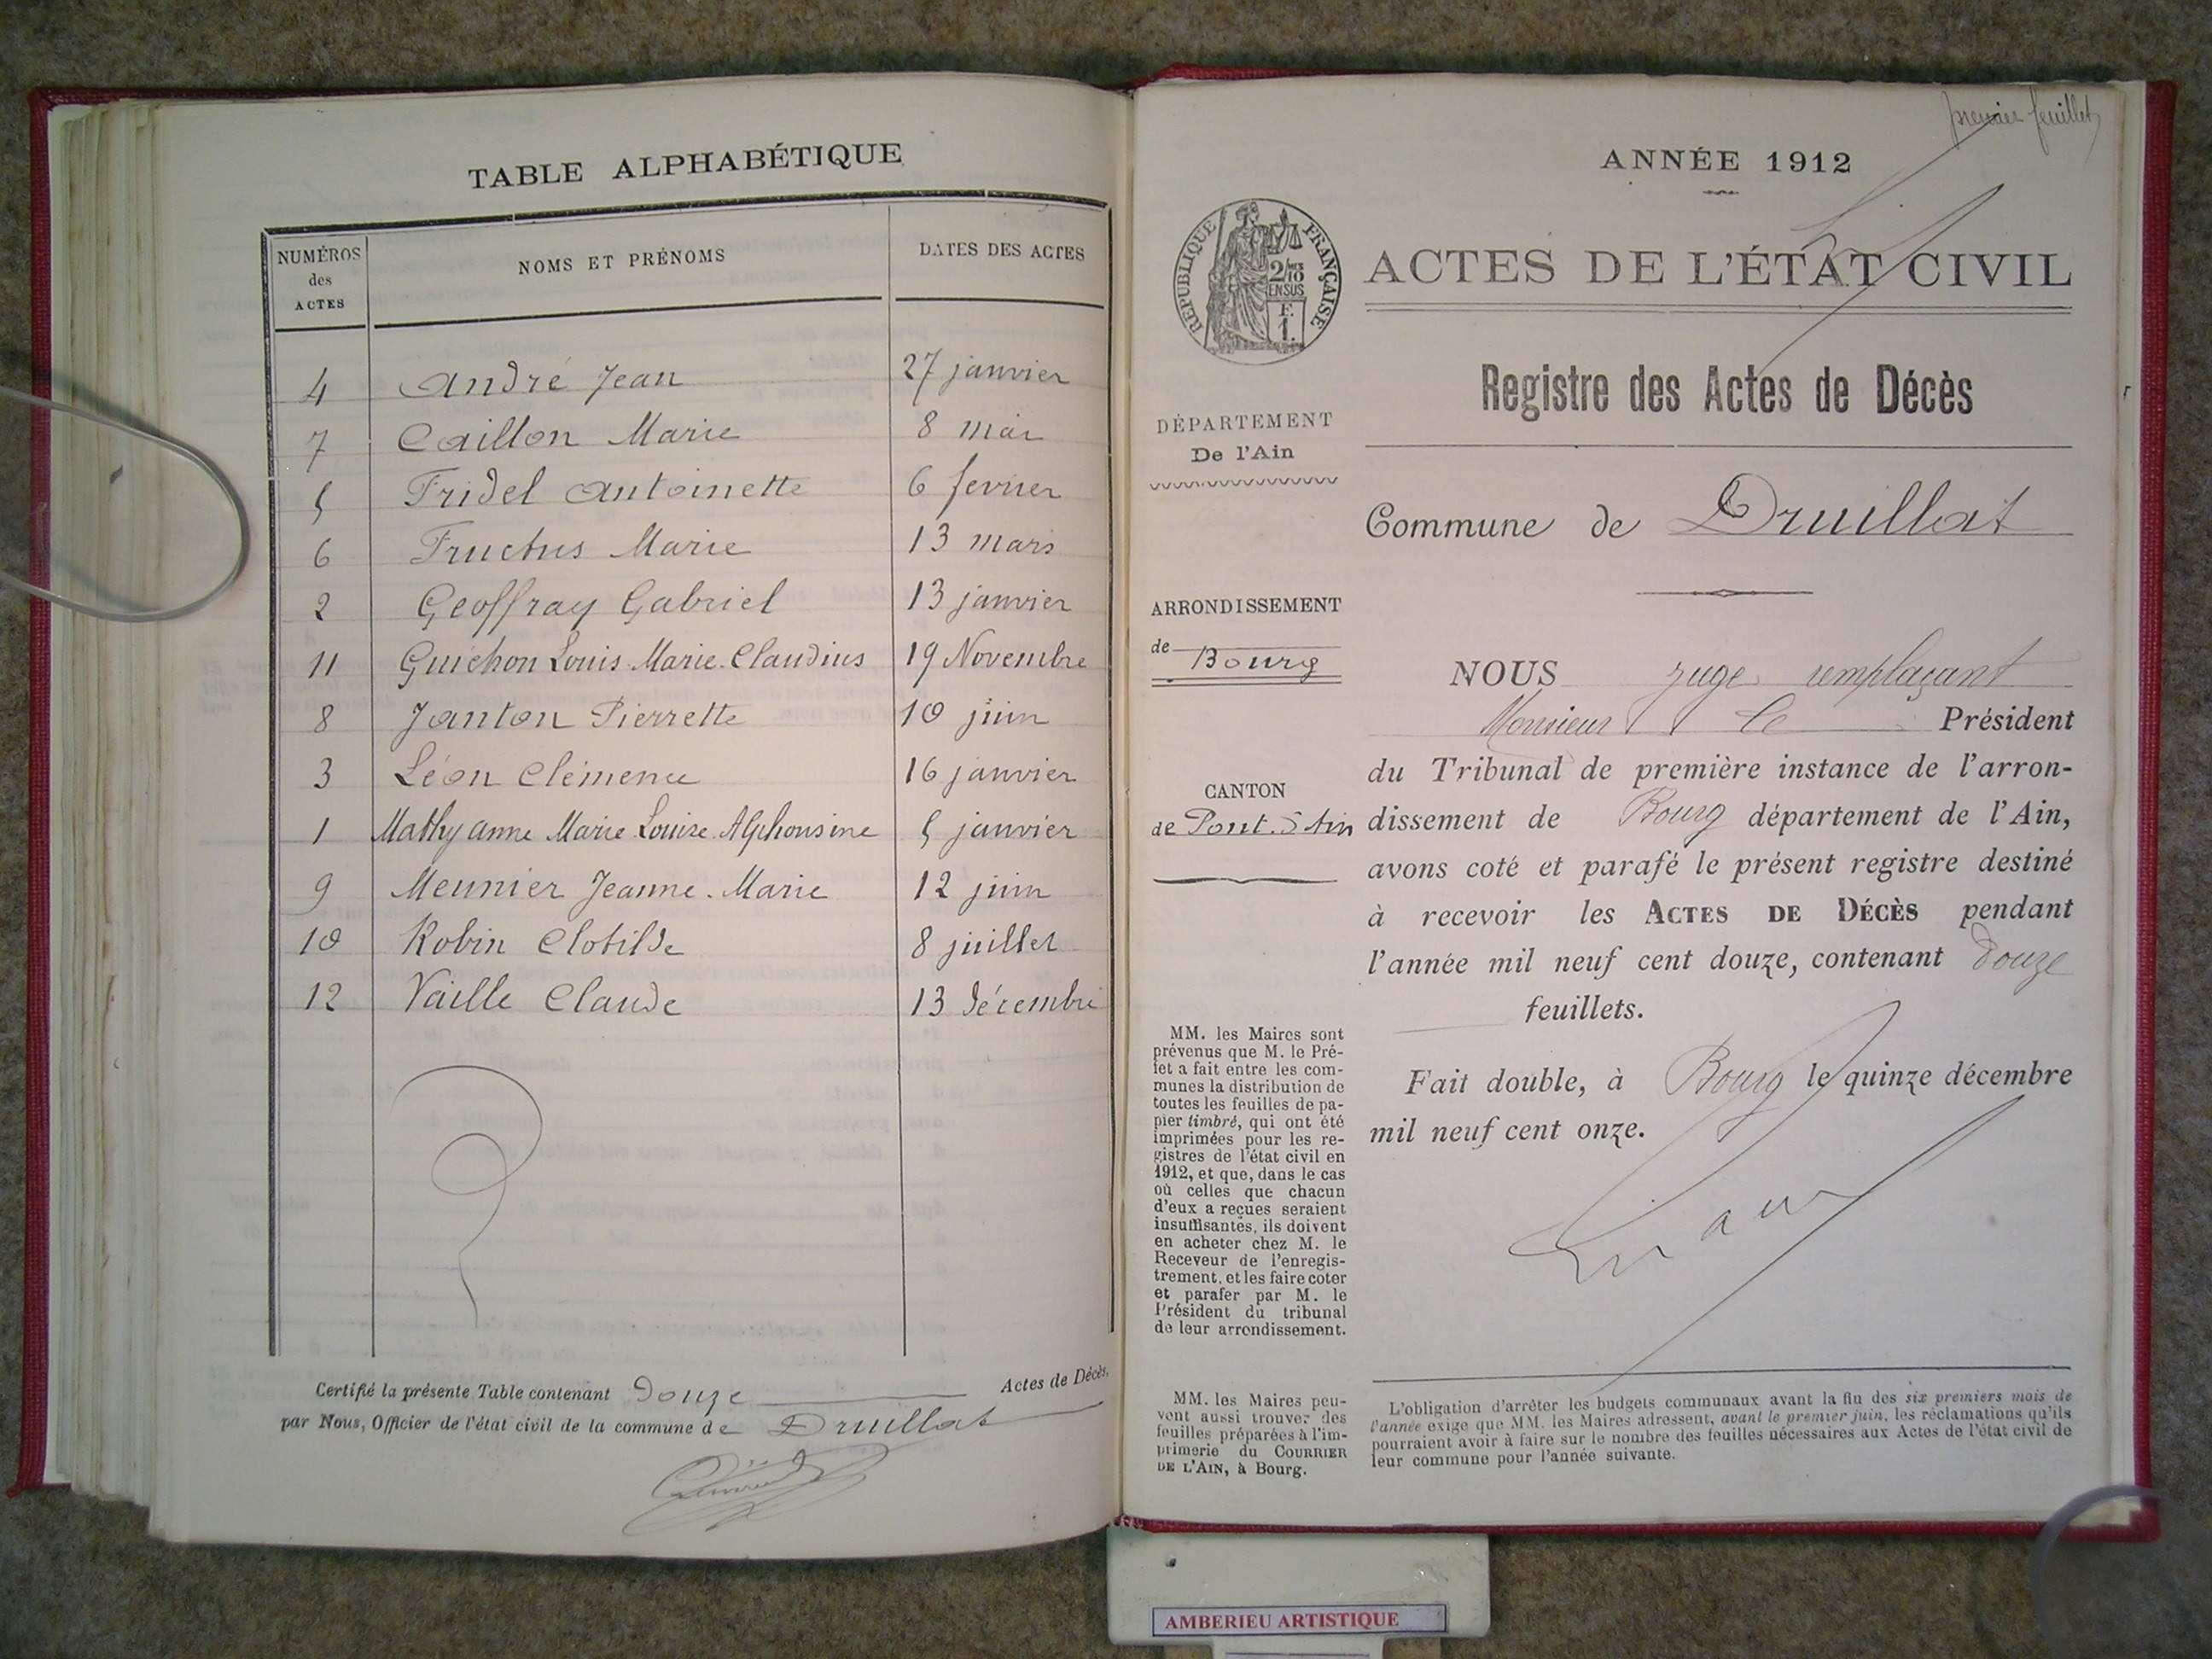 TABLE ALPHABÉTIQUE
NUMÉROS des ACTES
NOMS ET PRÉNOMS
DATES DES ACTES
4 André Jean 27 janvier
7 Caillon Marie 8 mai
5 Fridel Antoinette 6 fevrier
6 Fructus Marie 13 mars
2 Geoffray Gabriel 13 janvier
11 Guichon Louis Marie Claudius 19 Novembre
8 Janton Pierrette 10 juin
3 Léon Clémence 16 janvier
1 Mathy anne Marie Louise Alphonsine 5 janvier
9 Meunier Jeanne-Marie 12 juin
10 Robin Clotilde 8 juillet
12 Vaille Claude 13 décembre
Certifié la présente Table contenant Douze Actes de Décès,
par Nous, Officier de l'état civil de la commune de Druillat
premier feuillet
ANNÉE 1912
RÉPUBLIQUE FRANÇAISE
2/10
EN SUS
F.
1.
ACTES DE L'ÉTAT CIVIL
Registre des Actes de Décès
DÉPARTEMENT
De l'Ain
Commune de Druillat
ARRONDISSEMENT
de Bourg
CANTON
de Pont. d'Ain
MM. les Maires sont
prévenus que M. le Pré-
fet a fait entre les com-
munes la distribution de
toutes les feuilles de pa-
pier timbré, qui ont été
imprimées pour les re-
gistres de l'état civil en
1912, et que, dans le cas
où celles que chacun
d'eux a reçues seraient
insuffisantes, ils doivent
en acheter chez M. le
Receveur de l'enregis-
trement, et les faire coter
et parafer par M. le
Président du tribunal
de leur arrondissement.
MM. les Maires peu-
vent aussi trouver des
feuilles préparées à l'im-
primerie du COURRIER
DE L'AIN, à Bourg.
NOUS juge remplaçant
Monsieur le Président
du Tribunal de première instance de l'arron-
dissement de Bourg département de l'Ain,
avons coté et parafé le présent registre destiné
à recevoir les ACTES DE DÉCÈS pendant
l'année mil neuf cent douze, contenant douze
feuillets.
Fait double, à Bourg le quinze décembre
mil neuf cent onze.
L'obligation d'arrêter les budgets communaux avant la fin des six premiers mois de
l'année exige que MM. les Maires adressent, avant le premier juin, les réclamations qu'ils
pourraient avoir à faire sur le nombre des feuilles nécessaires aux Actes de l'état civil de
leur commune pour l'année suivante.
AMBERIEU ARTISTIQUE